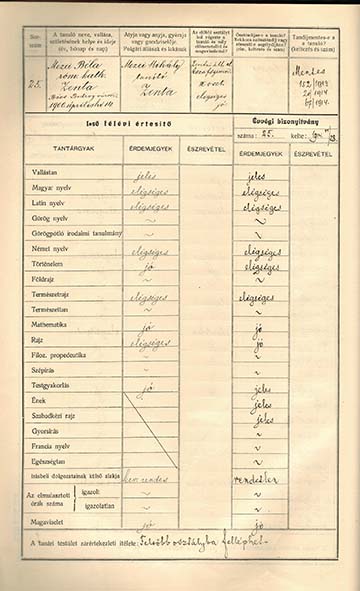 Sor-
szám
A tanuló neve, vallása,
születésének helye és ideje
(év, hónap és nap)
Atyja vagy anyja, gyámja
vagy gondviselője.
Polgári állásuk és lakásuk
Tandíjmentes-e a
a tanuló?
(keltezés és szám)
25.
Mezei Béla
róm. kath.
Zenta
Mezei Mihály
tanító
Zenta
elégséges
jó
Mentes
Első félévi értesítő
Évvégi bizonyítvány
száma: 25. kelte:
TANTÁRGYAK ÉRDEMJEGYEK ÉSZREVÉTEL ÉRDEMJEGYEK ÉSZREVÉTEL
Vallástan jeles jeles
Magyar nyelv elégséges elégséges
Latin nyelv elégséges elégséges
Görög nyelv ~ ~
Görögpótló irodalmi tanulmány ~ ~
Német nyelv elégséges elégséges
Történelem jó elégséges
Földrajz ~ ~
Természetrajz elégséges elégséges
Természettan ~ ~
Mathematika jó jó
Rajz elégséges jó
Filoz. propedeutika ~ ~
Szépírás ~ ~
Testgyakorlás jó jeles
Ének jeles
Szabadkézi rajz jeles
Gyorsírás ~
Francia nyelv ~
Egészségtan ~
Írásbeli dolgozatainak külső alakja rendes rendetlen
Az elmulasztott
órák száma
igazolt: ~ ~
igazolatlan ~ ~
Magaviselet jó jó
A tanári testület zárértekezleti ítélete: Felsőbb osztályba felléphet.